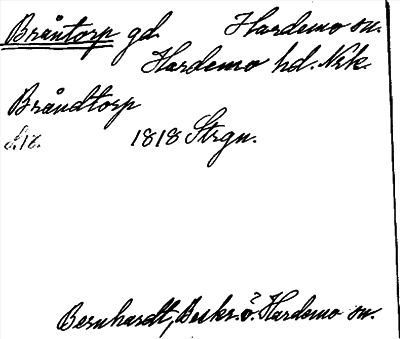 Bråntorp gd. Hardemo sn.
Hardemo hd. Nrk.
Bråndtorp
s. 18. 1818 Strgn.
Bernhardt, Beskr. ö. Hardemo sn.